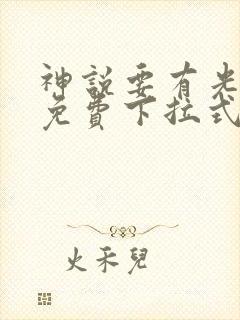 神說要有光
免費下拉式
火禾兒